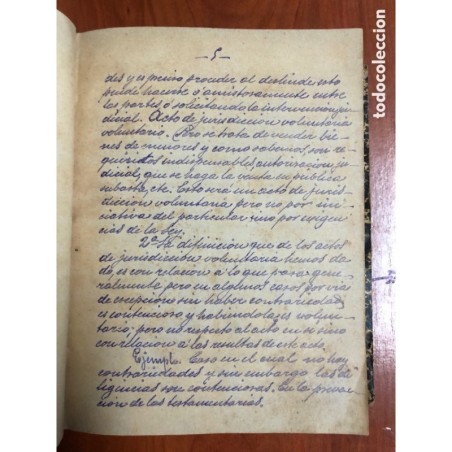 — 5 —
des y es preciso proceder al deslinde esto
puede hacerse ó amistosamente entre
las partes ó solicitando la intervención ju-
dicial. Acto de jurisdicción voluntaria
voluntario. Pero se trata de vender bie-
nes de menores y como sabemos, son re-
quisitos indispensables, autorización ju-
dicial, que se haga la venta en pública
subasta, etc. Esto será un acto de juris-
dicción voluntaria pero no por ini-
ciativa del particular sino por exigen-
cias de la ley.
2ª La definición que de los actos
de jurisdicción voluntaria hemos da-
do, es con relación a lo que pasa gene-
ralmente pero en algunos casos por vía
de excepción sin haber contrariedad
es contencioso y habiéndola es volun-
tario; pero no respecto al acto en si sino
con relación a los resultas de este acto.
Ejemplo. Caso en el cual no hay
contrariedades y sin embargo las di-
ligencias son contenciosas. En la preven-
ción de las testamentarias.
todocoleccion